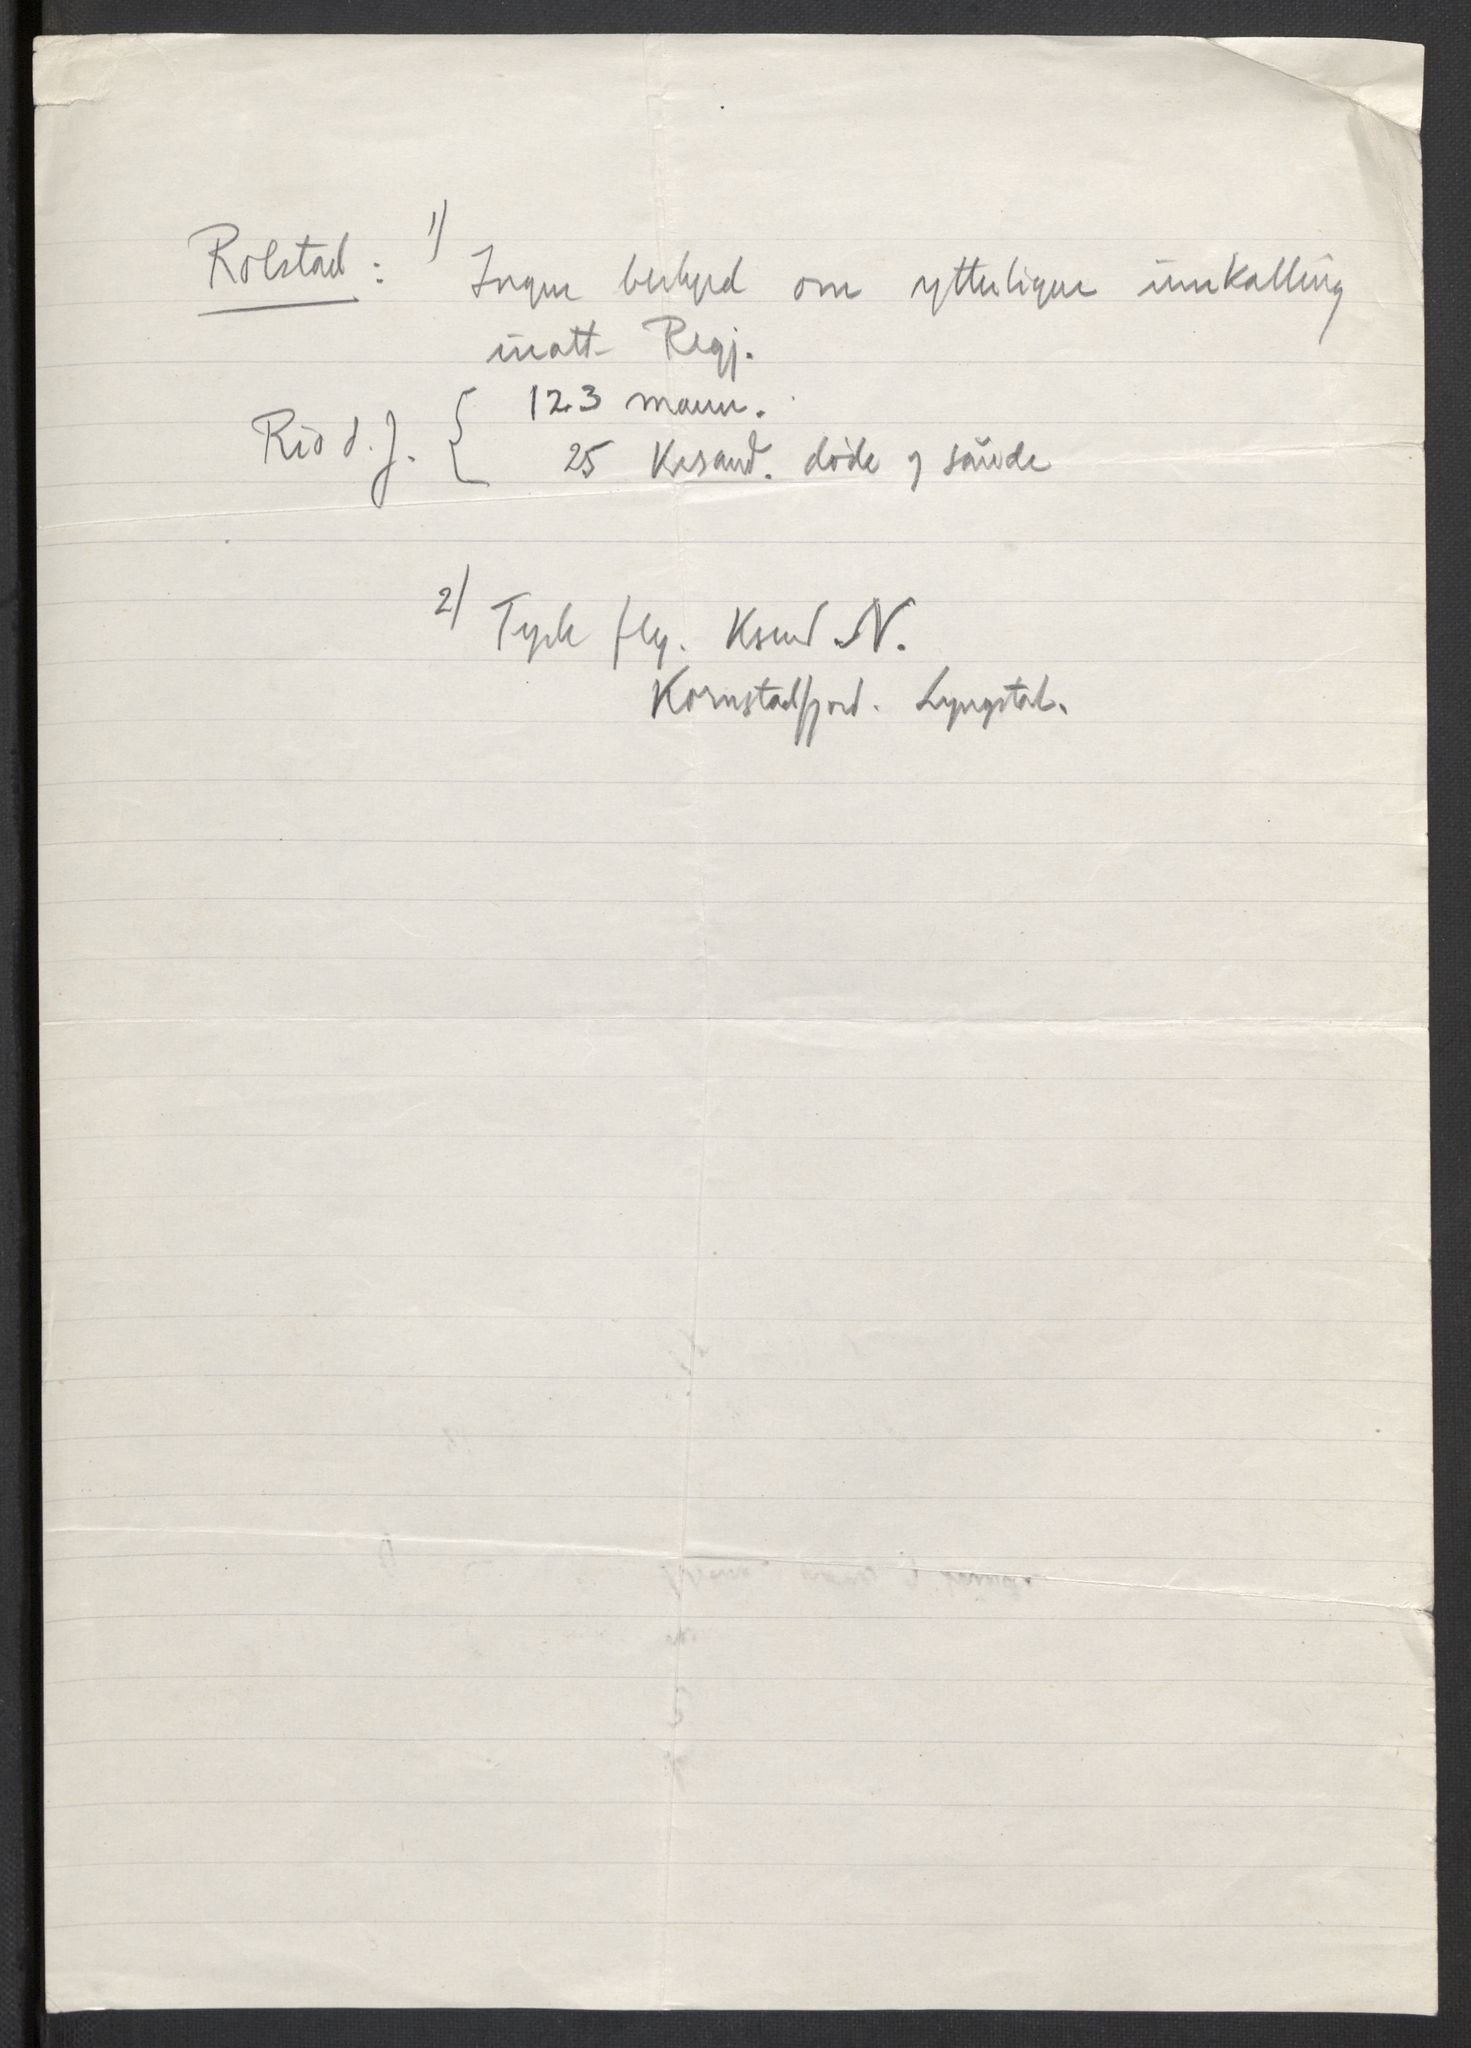 Rolstad: 1) Ingen beskjed om ytterligere innkalling
inatt- Regj.
Rio d. J. { 123 mann.
25 Krsand. døde og sårede
2) Tysk fly. Ksund N.
Kornstadfjord. Lyngstad.